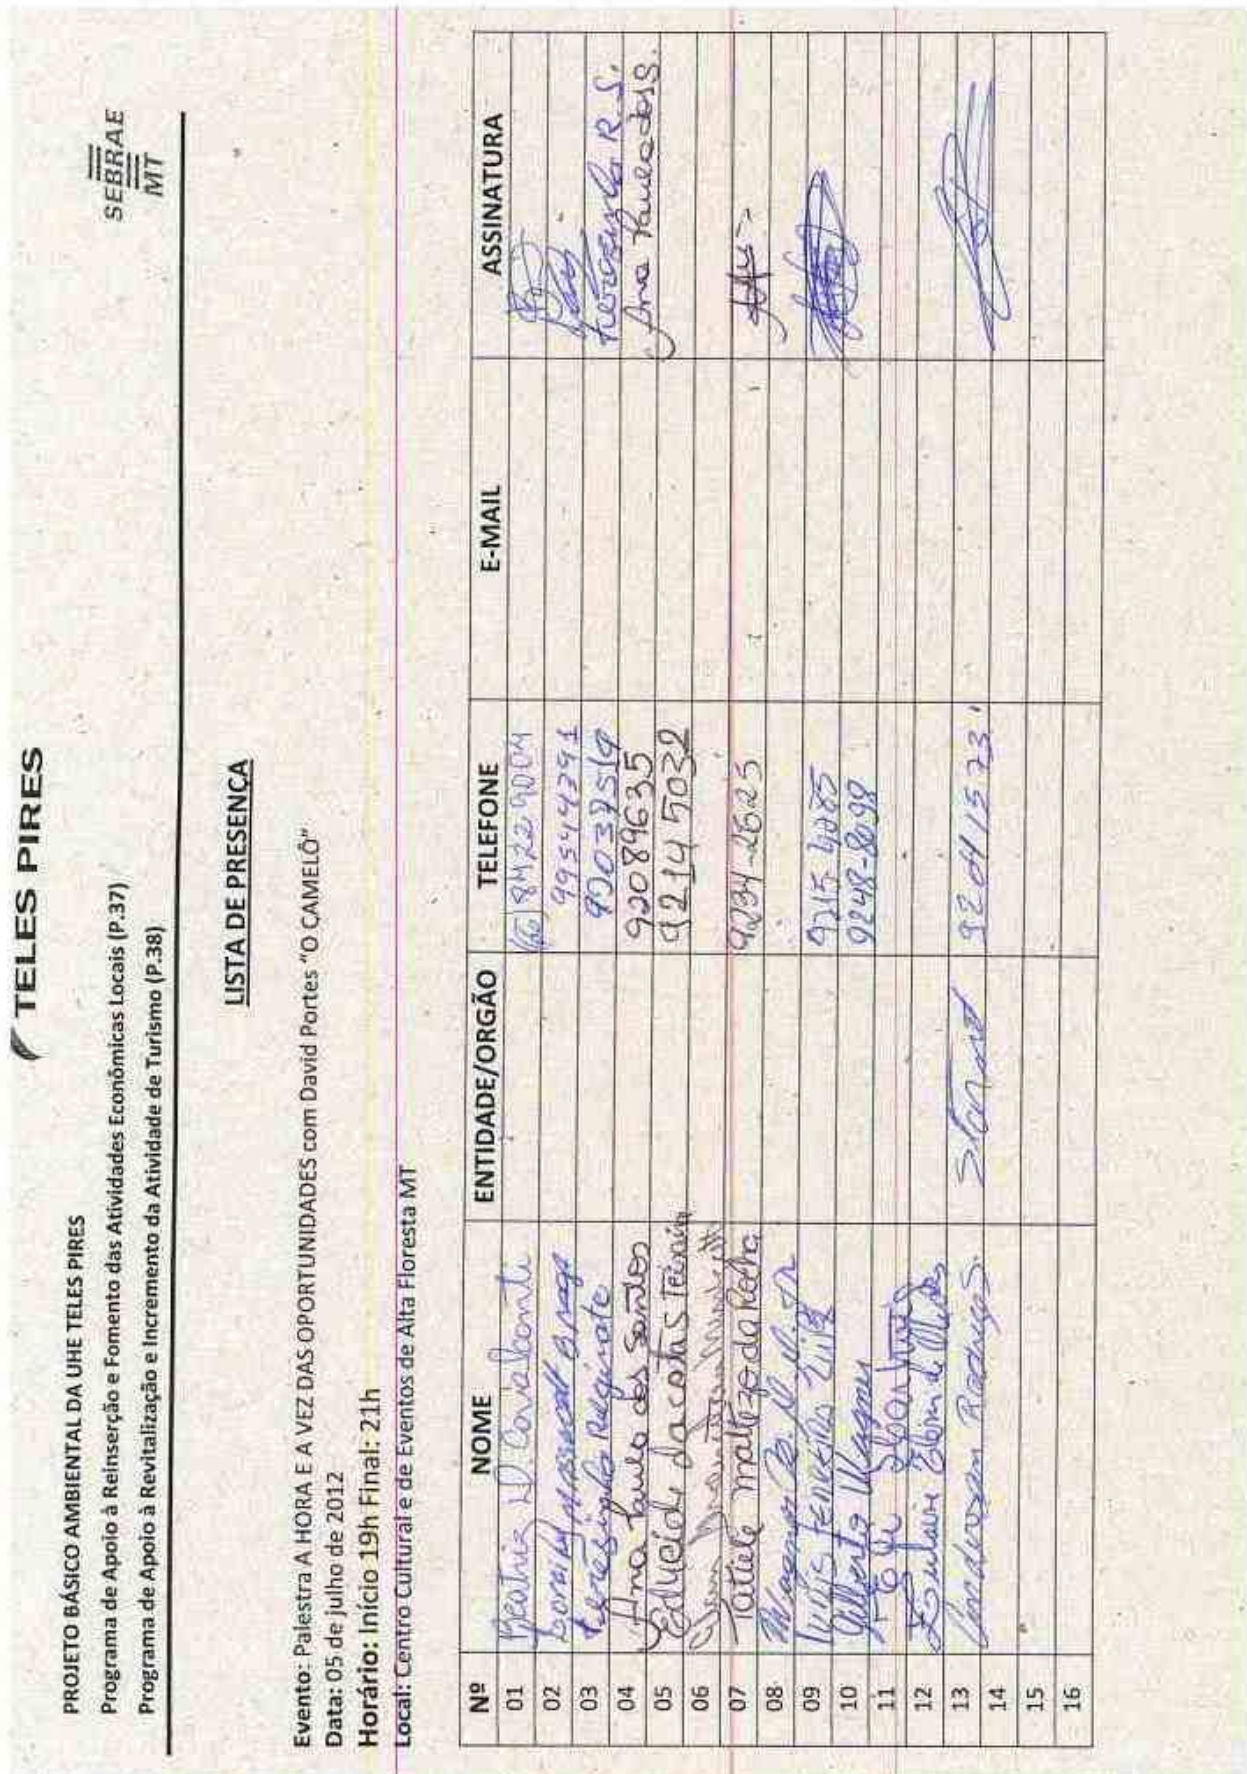 TELES PIRES
PROJETO BÁSICO AMBIENTAL DA UHE TELES PIRES
Programa de Apoio à Reinserção e Fomento das Atividades Econômicas Locais (P.37)
Programa de Apoio à Revitalização e Incremento da Atividade de Turismo (P.38)
SEBRAE
MT
LISTA DE PRESENÇA
Evento: Palestra A HORA E A VEZ DAS OPORTUNIDADES com David Portes "O CAMELÔ"
Data: 05 de julho de 2012
Horário: Início 19h Final: 21h
Local: Centro Cultural e de Eventos de Alta Floresta MT
Nº NOME ENTIDADE/ORGÃO TELEFONE E-MAIL ASSINATURA
01 Beatriz D. Cavalcante (66) 84229004
02 Braga 99544791
03 Terezinha 92037519 Terezinha R.S.
04 Ana Paula dos Santos 92089635 Ana Paula dos S.
05 da costa S 92145032
06
07 Tatiele da Rocha 9234-2625
08
09 Luis Ferreira Luiz 9215 4085
10 Gilberto Wagner 9248-8098
11
12
13 Anderson Rodrigues. 92411573
14
15
16